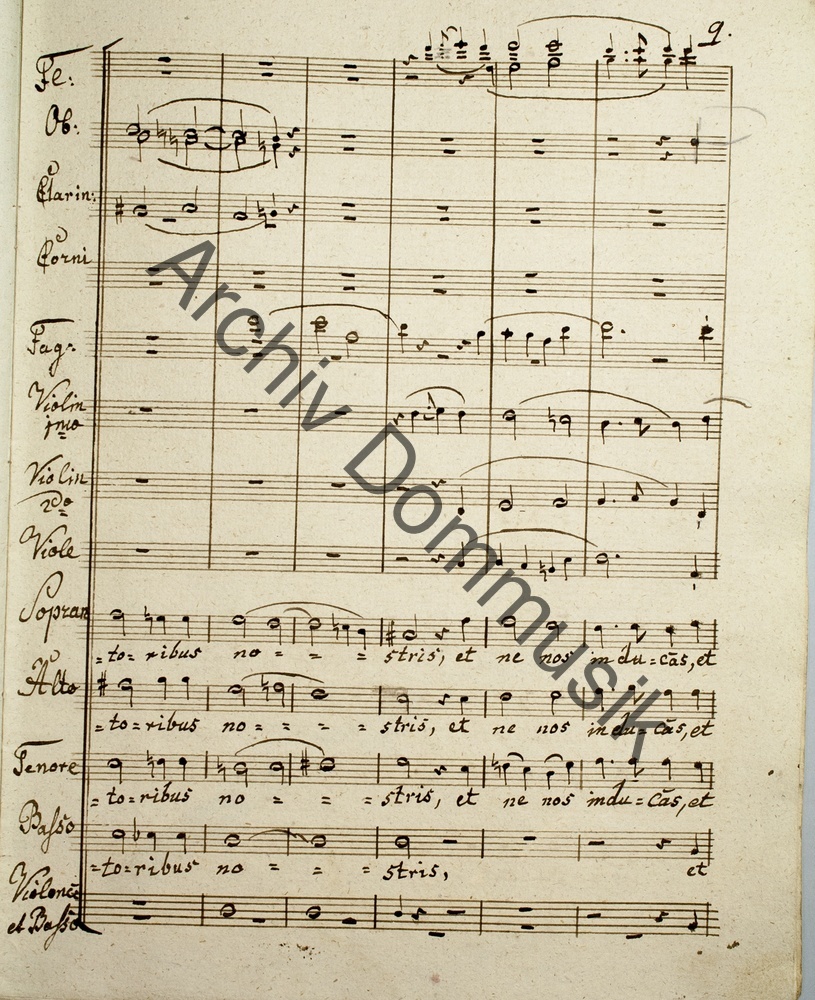 9.
Fl:
Ob:
Clarin:
Corni
Fag:
Violin
jmo
Violin
2do
Viole
Sopran
=to=ribus no = = = stris, et ne nos indu=cās, et
Alto
=to=ribus no = = = stris, et ne nos indu=cas, et
Tenore
=to=ribus no = = = stris, et ne nos indu=cās, et
Basso
=to=ribus no = = = stris, et
Violonc
et Basso
Archiv Dommusik